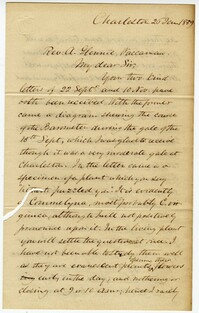 Charleston 25 Jan. 185
Rev. A. Glennie, Waccamaw
My dear Sir,
Your two kind
letters of 22 Sept. and 12 Nov. have
both been received. With the former
came a diagram shewing the curve
of the Barometer during the gale of the
16th Sept., which I was glad to receive
though it was a very moderate gale at
Charleston. In the letter came a
specimen of a plant which, you say
puzzled you. It is evidently
Commelyna, most probably C. vir-
ginica, although he will not positively
pronounce upon it. In the living plant
you will settle the question at once. I
have not been able to study them well
as they are evanescent plants, flowers
opening
early in the day, and withering or
closing at 9 or 10 A.M.; which I rarely